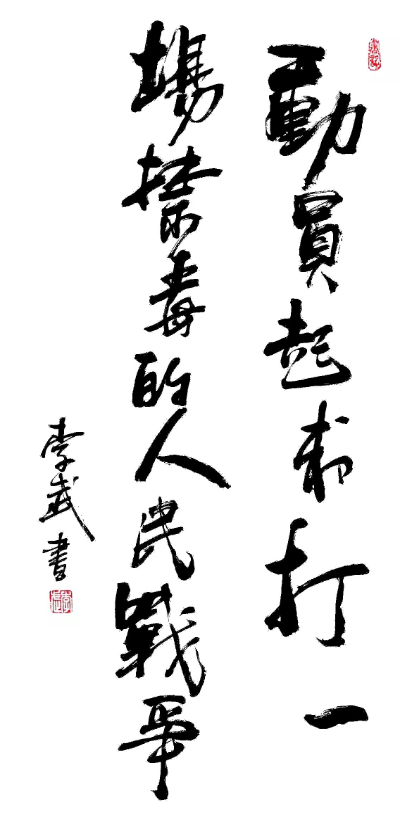 動員起來打一
場禁毒的人民戰爭
李武書